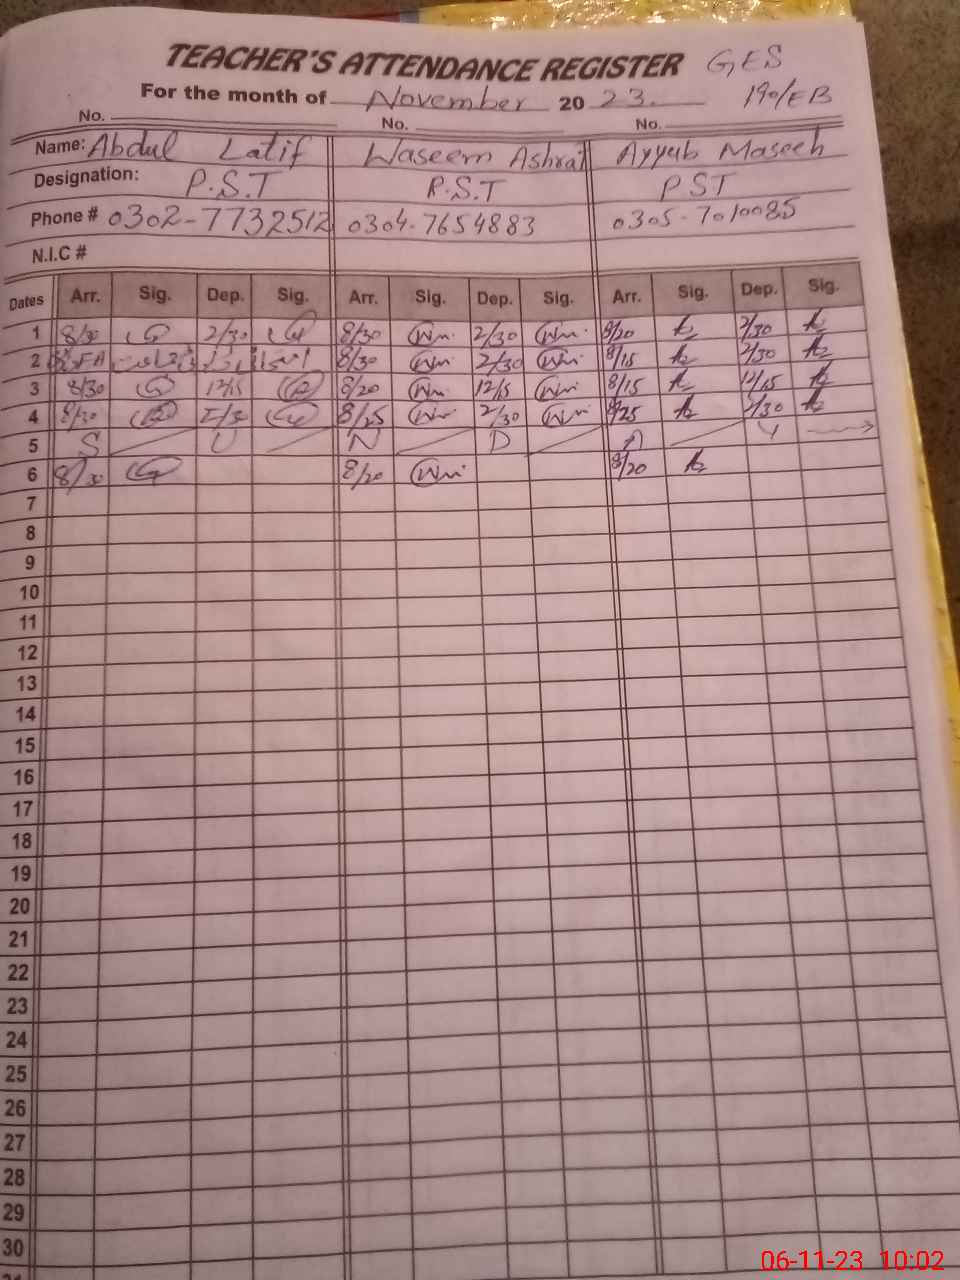 TEACHER'S ATTENDANCE REGISTER GES
For the month of November 2023. 190/EB
No. No. No.
Name: Abdul Latif Waseem Ashraf Ayyub Maseeh
Designation: P.S.T P.S.T PST
Phone # 0302-7732512 0304-7654883 0305-7010085
N.I.C #
Dates Arr. Sig. Dep. Sig. Arr. Sig. Dep. Sig. Arr. Sig. Dep. Sig.
1 8/30 2/30 8/30 Wm. 2/30 Wm. 8/20 2/30
2 8/30 Wm. 2/30 Wm. 8/15 2/30
3 8/30 12/15 8/20 Wm. 12/15 Wm. 8/15 12/15
4 8/30 8/25 Wm. 2/30 Wm. 8/25 2/30
5 S U N D A Y
6 8/30 8/20 Wm. 8/20
7
8
9
10
11
12
13
14
15
16
17
18
19
20
21
22
23
24
25
26
27
28
29
30
06-11-23 10:02